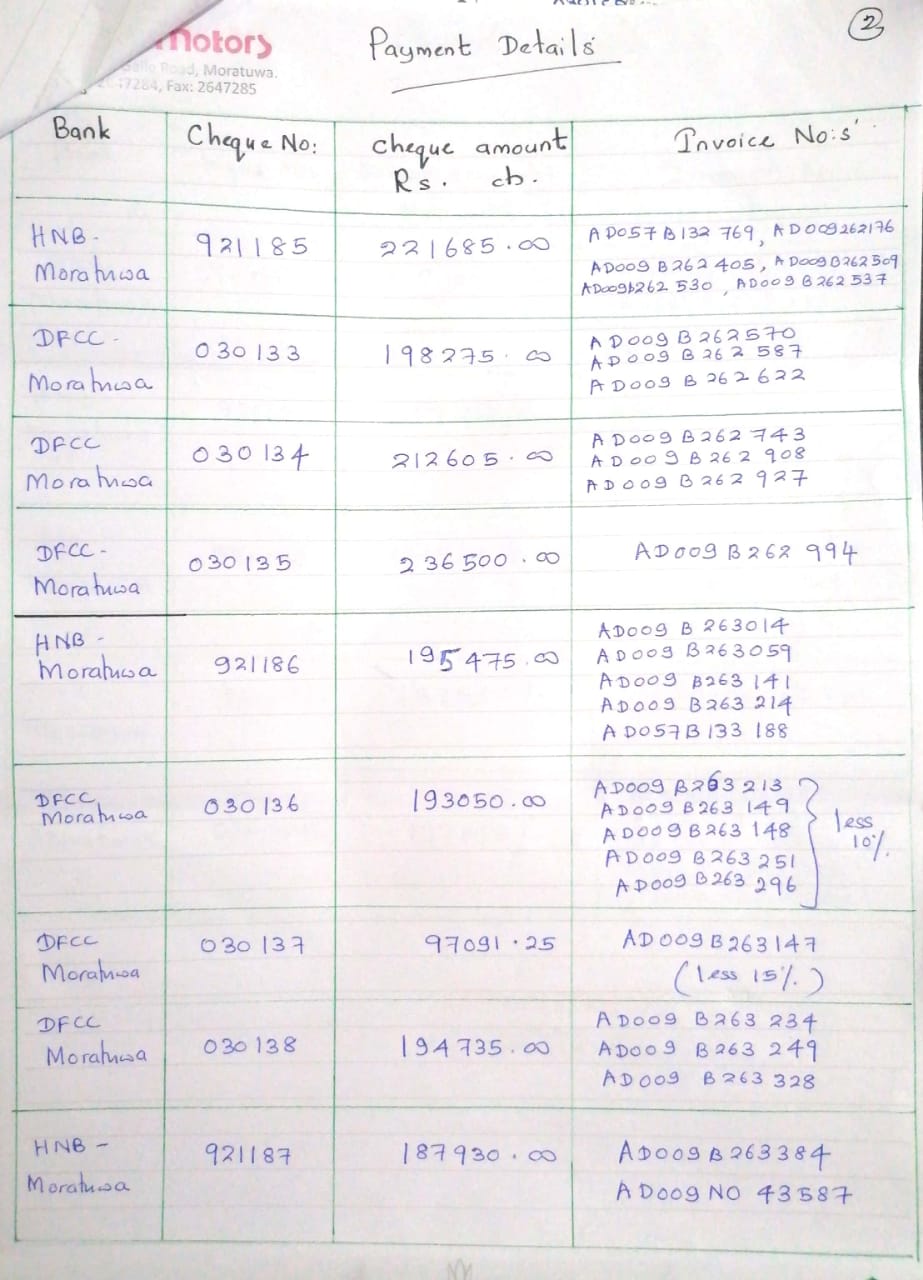 ②
Motors
Road, Moratuwa.
7284, Fax: 2647285
Payment Details
Bank
Cheque No:
Cheque amount
Rs. cts.
Invoice No:s'
HNB -
Moratuwa
921185
221685.00
AD057B132 769, AD009262176
AD009 B262 405, AD009B262509
AD009b262 530, AD009 B262 537
DFCC -
Moratuwa
030133
198275.00
AD009 B262570
AD009 B262 587
AD009 B 262622
DFCC
Moratuwa
030134
212605.00
AD009 B262 743
AD009 B262 908
AD009 B262 927
DFCC -
Moratuwa
030135
236500.00
AD009 B262 994
HNB -
Moratuwa
921186
195475.00
AD009 B 263014
AD009 B263059
AD009 B263 141
AD009 B263 214
AD057B 133 188
DFCC
Moratuwa
030136
193050.00
AD009 B263 213
AD009 B263 149
AD009 B263 148
AD009 B263 251
AD009 B263 296
less
10%.
DFCC
Moratuwa
030137
97091.25
AD009 B263147
(less 15%.)
DFCC
Moratuwa
030138
194735.00
AD009 B263 234
AD009 B263 249
AD009 B263 328
HNB -
Moratuwa
921187
187930.00
AD009 B 263384
AD009 NO 43587